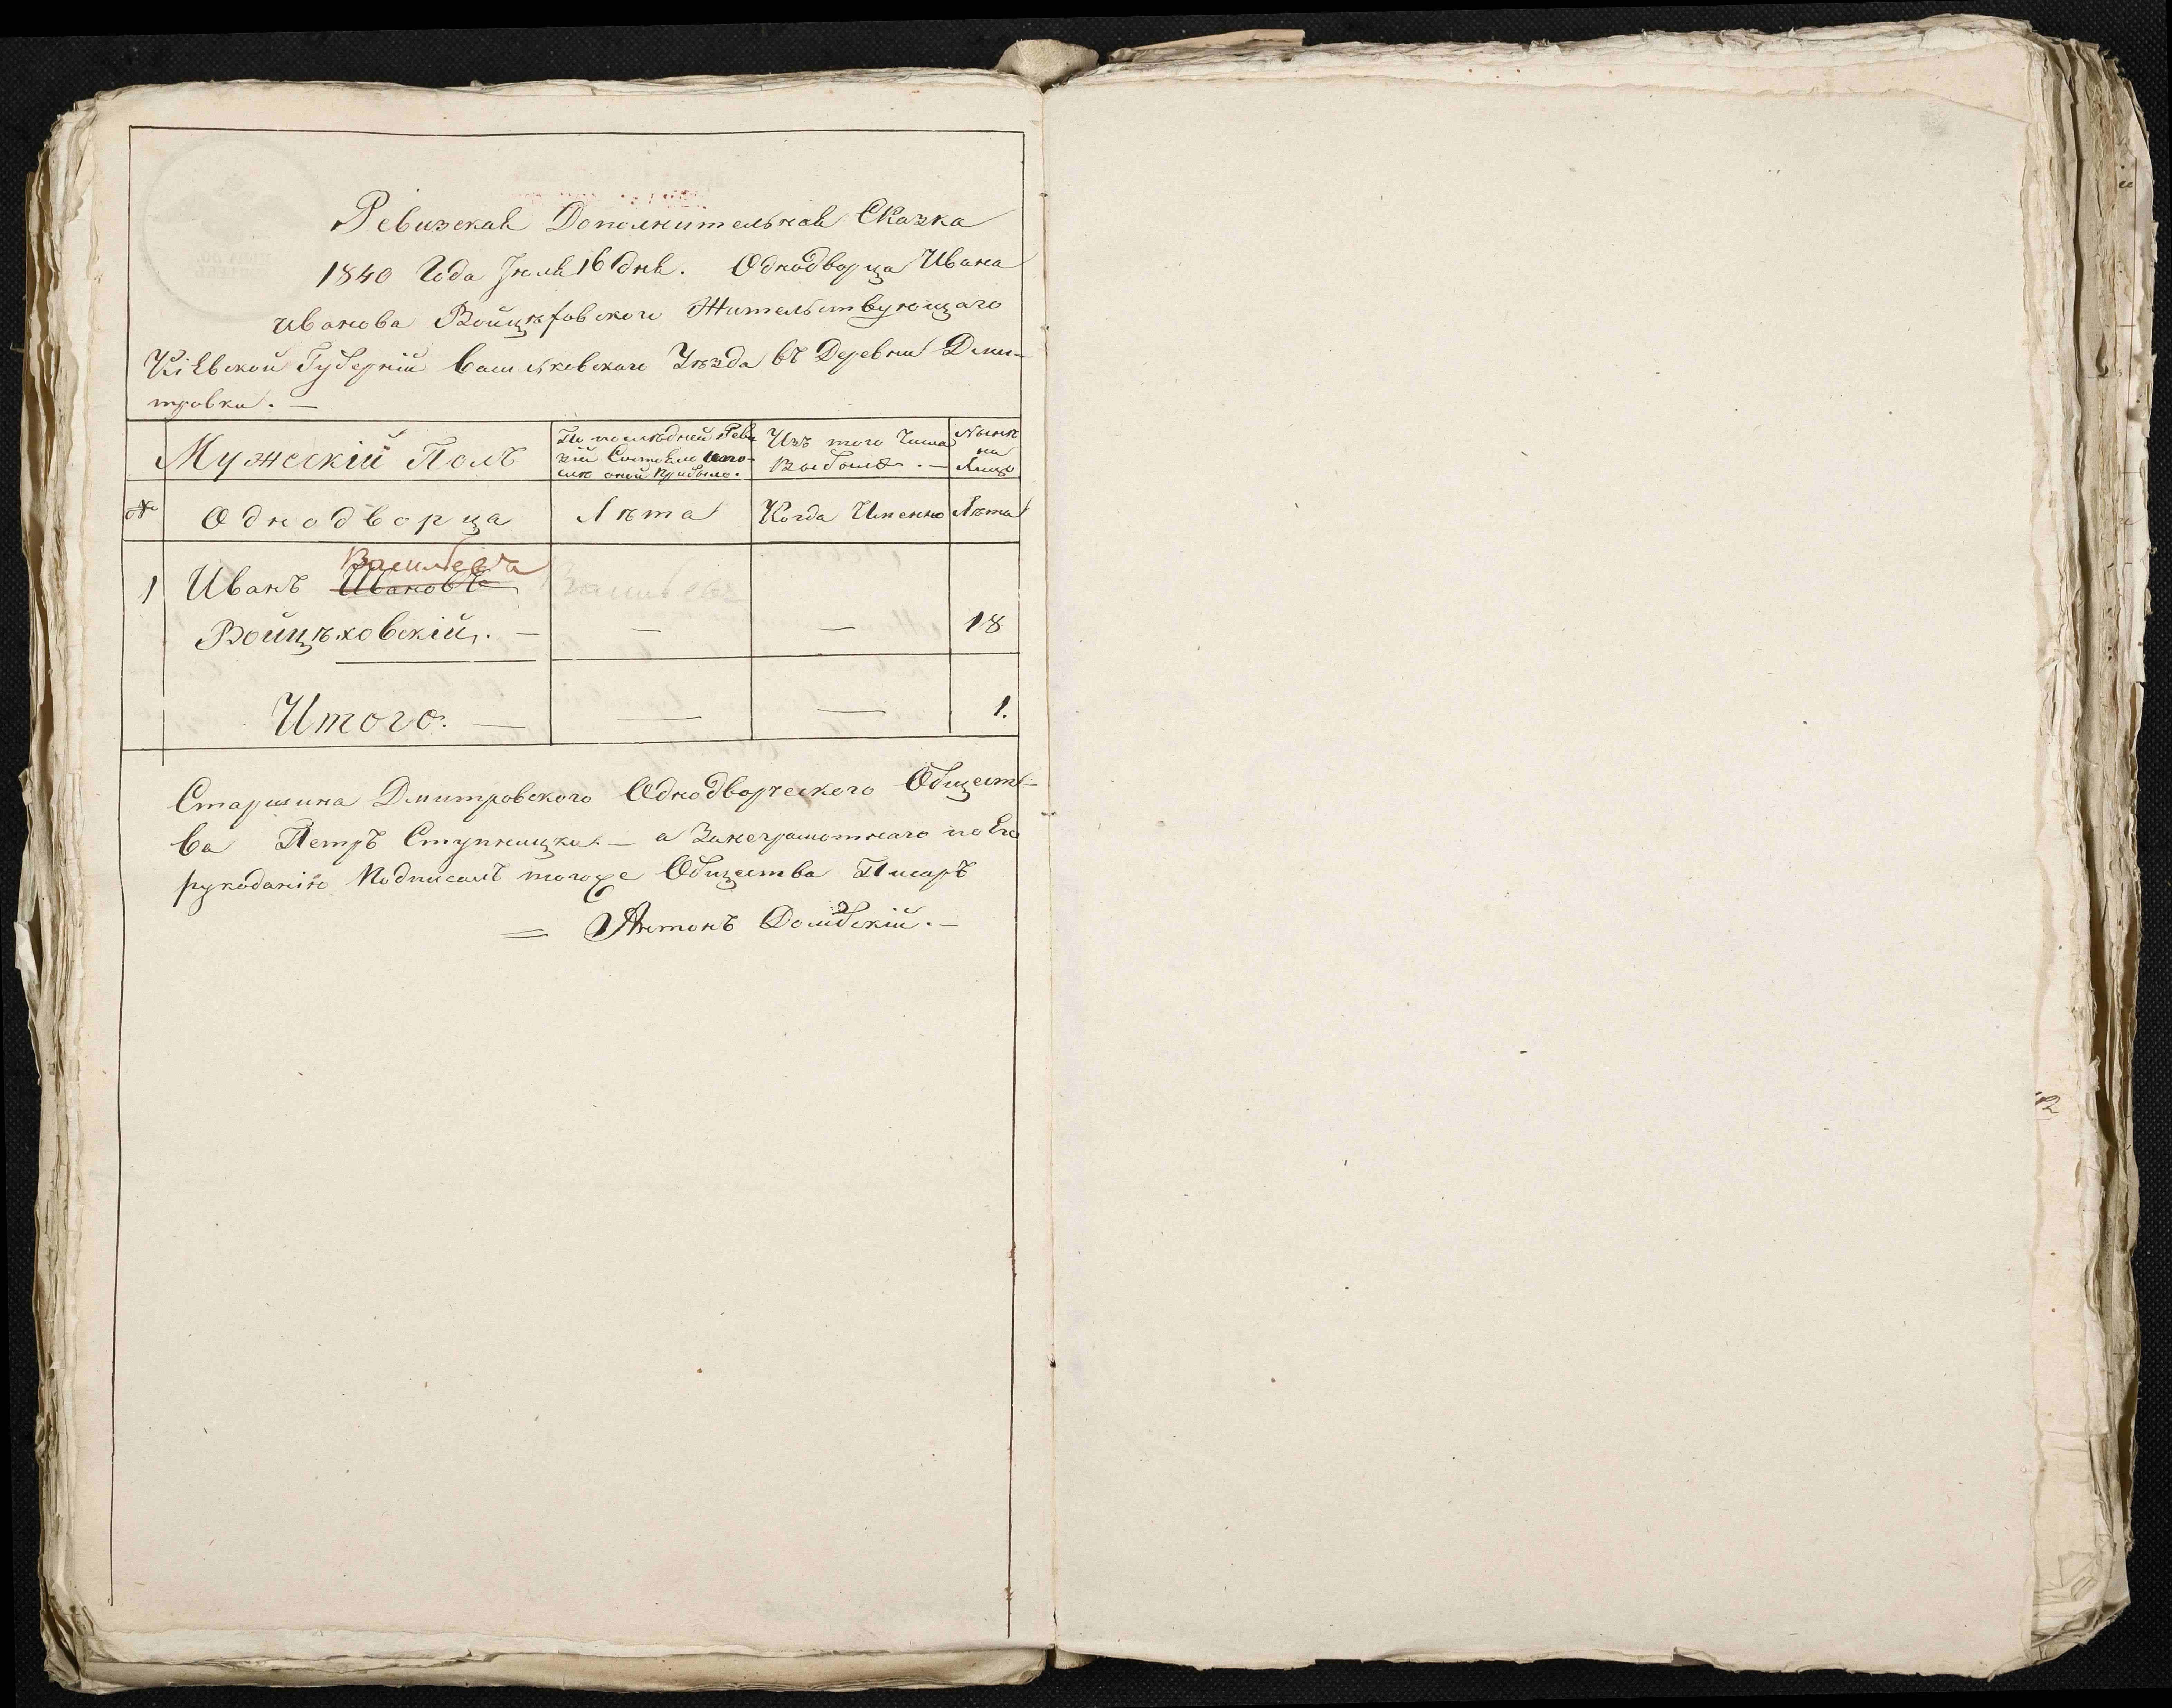 Ревизская Дополнительная Сказка
1840 Года Іюля 16 дня. Однодворца Ивана
иванова Войцѣховского Жительствующаго
Кіевской Губерніи васильковскаго Уѣзда въ Деревни Дми-
тровки. —
Мужескій Полъ
По послѣдней Реви
зіи Состояло
послѣ оной Прибыло.
Изъ того Числа
Выбыло. —
Нынѣ
на
Лицо
№ Однодворца Лѣта Когда Именно Лѣта
Васильевъ
1 Иванъ Ивановъ Васильевъ
Войцѣховскій. — — — 18
Итого. — — — 1.
Старшина Дмитровского Однодворческого Общест-
ва Петръ Ступницки. — а Занеграмотнаго по Его
рукоданію Подписалъ тогоже Общества Писарь
= Антонъ Домбскій. —